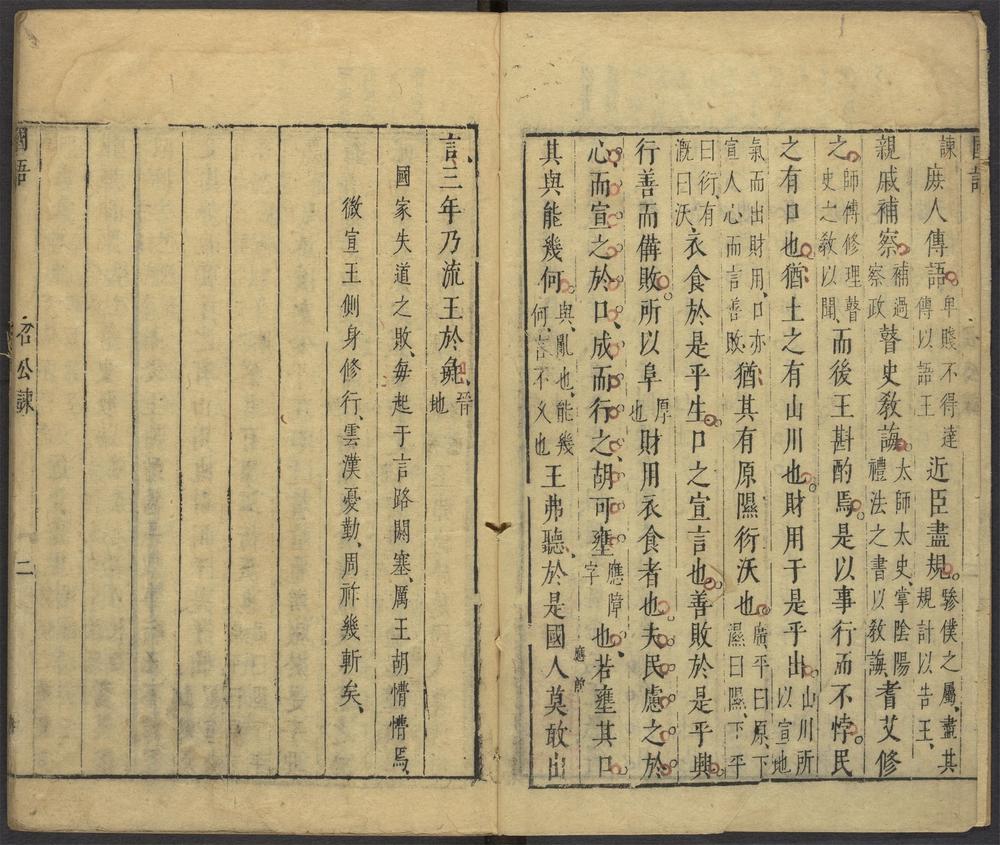 國語
諫庻人傳語卑賤不得達傳以語王近臣盡規驂僕之屬、盡其規計以告王、
親戚補察補過察政瞽史敎誨太師太史、掌陰陽禮法之書以敎誨、耆艾修
之師傅修理瞽史之敎以聞、而後王斟酌焉是以事行而不悖民
之有口也猶土之有山川也財用于是乎出山川所以宣地
氣而出財用、口亦宣人心而言善敗猶其有原隰衍沃也廣平曰原、下濕曰隰、下平
曰衍、有溉曰沃、衣食於是乎生口之宣言也善敗於是乎興
行善而備敗所以阜厚也財用衣食者也夫民慮之於
心、而宣之於口、成而行之、胡可壅應障字也、若壅其口
應前
其與能幾何與、亂也、能幾何、言不久也王弗聽、於是國人莫敢出
言、三年乃流王於彘、晉地
國家失道之敗、每起于言路閼塞、厲王胡懵懵焉、
微宣王側身修行、雲漢憂勤、周祚幾斬矣、
國語
召公諫
二